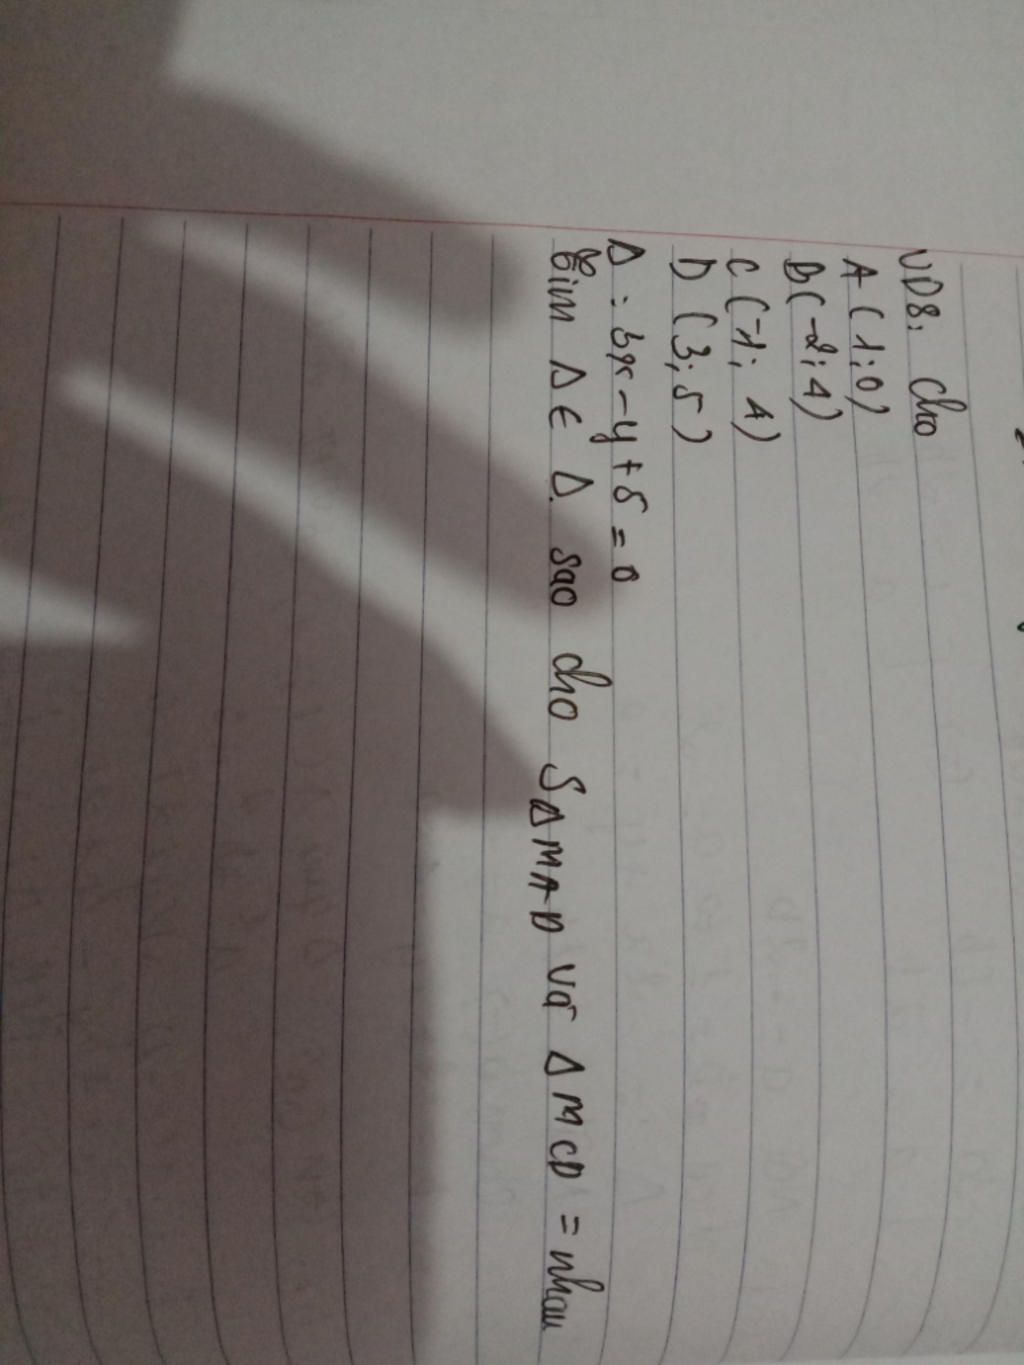 VD8: Cho
A (1;0)
B(-2;4)
C (-1; 4)
D (3;5)
Δ : 3x - y + 5 = 0
Tìm Δ ∈ Δ sao cho SΔMAB và ΔMCD = nhau